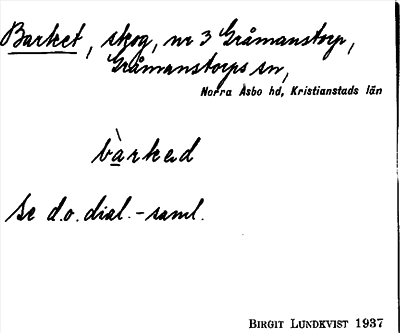 Barket, skog, nr 3 Gråmanstorp,
Gråmanstorps sn,
Norra Åsbo hd, Kristianstads län
bàrkəd
Se d.o. dial.-saml.
BIRGIT LUNDKVIST 1937